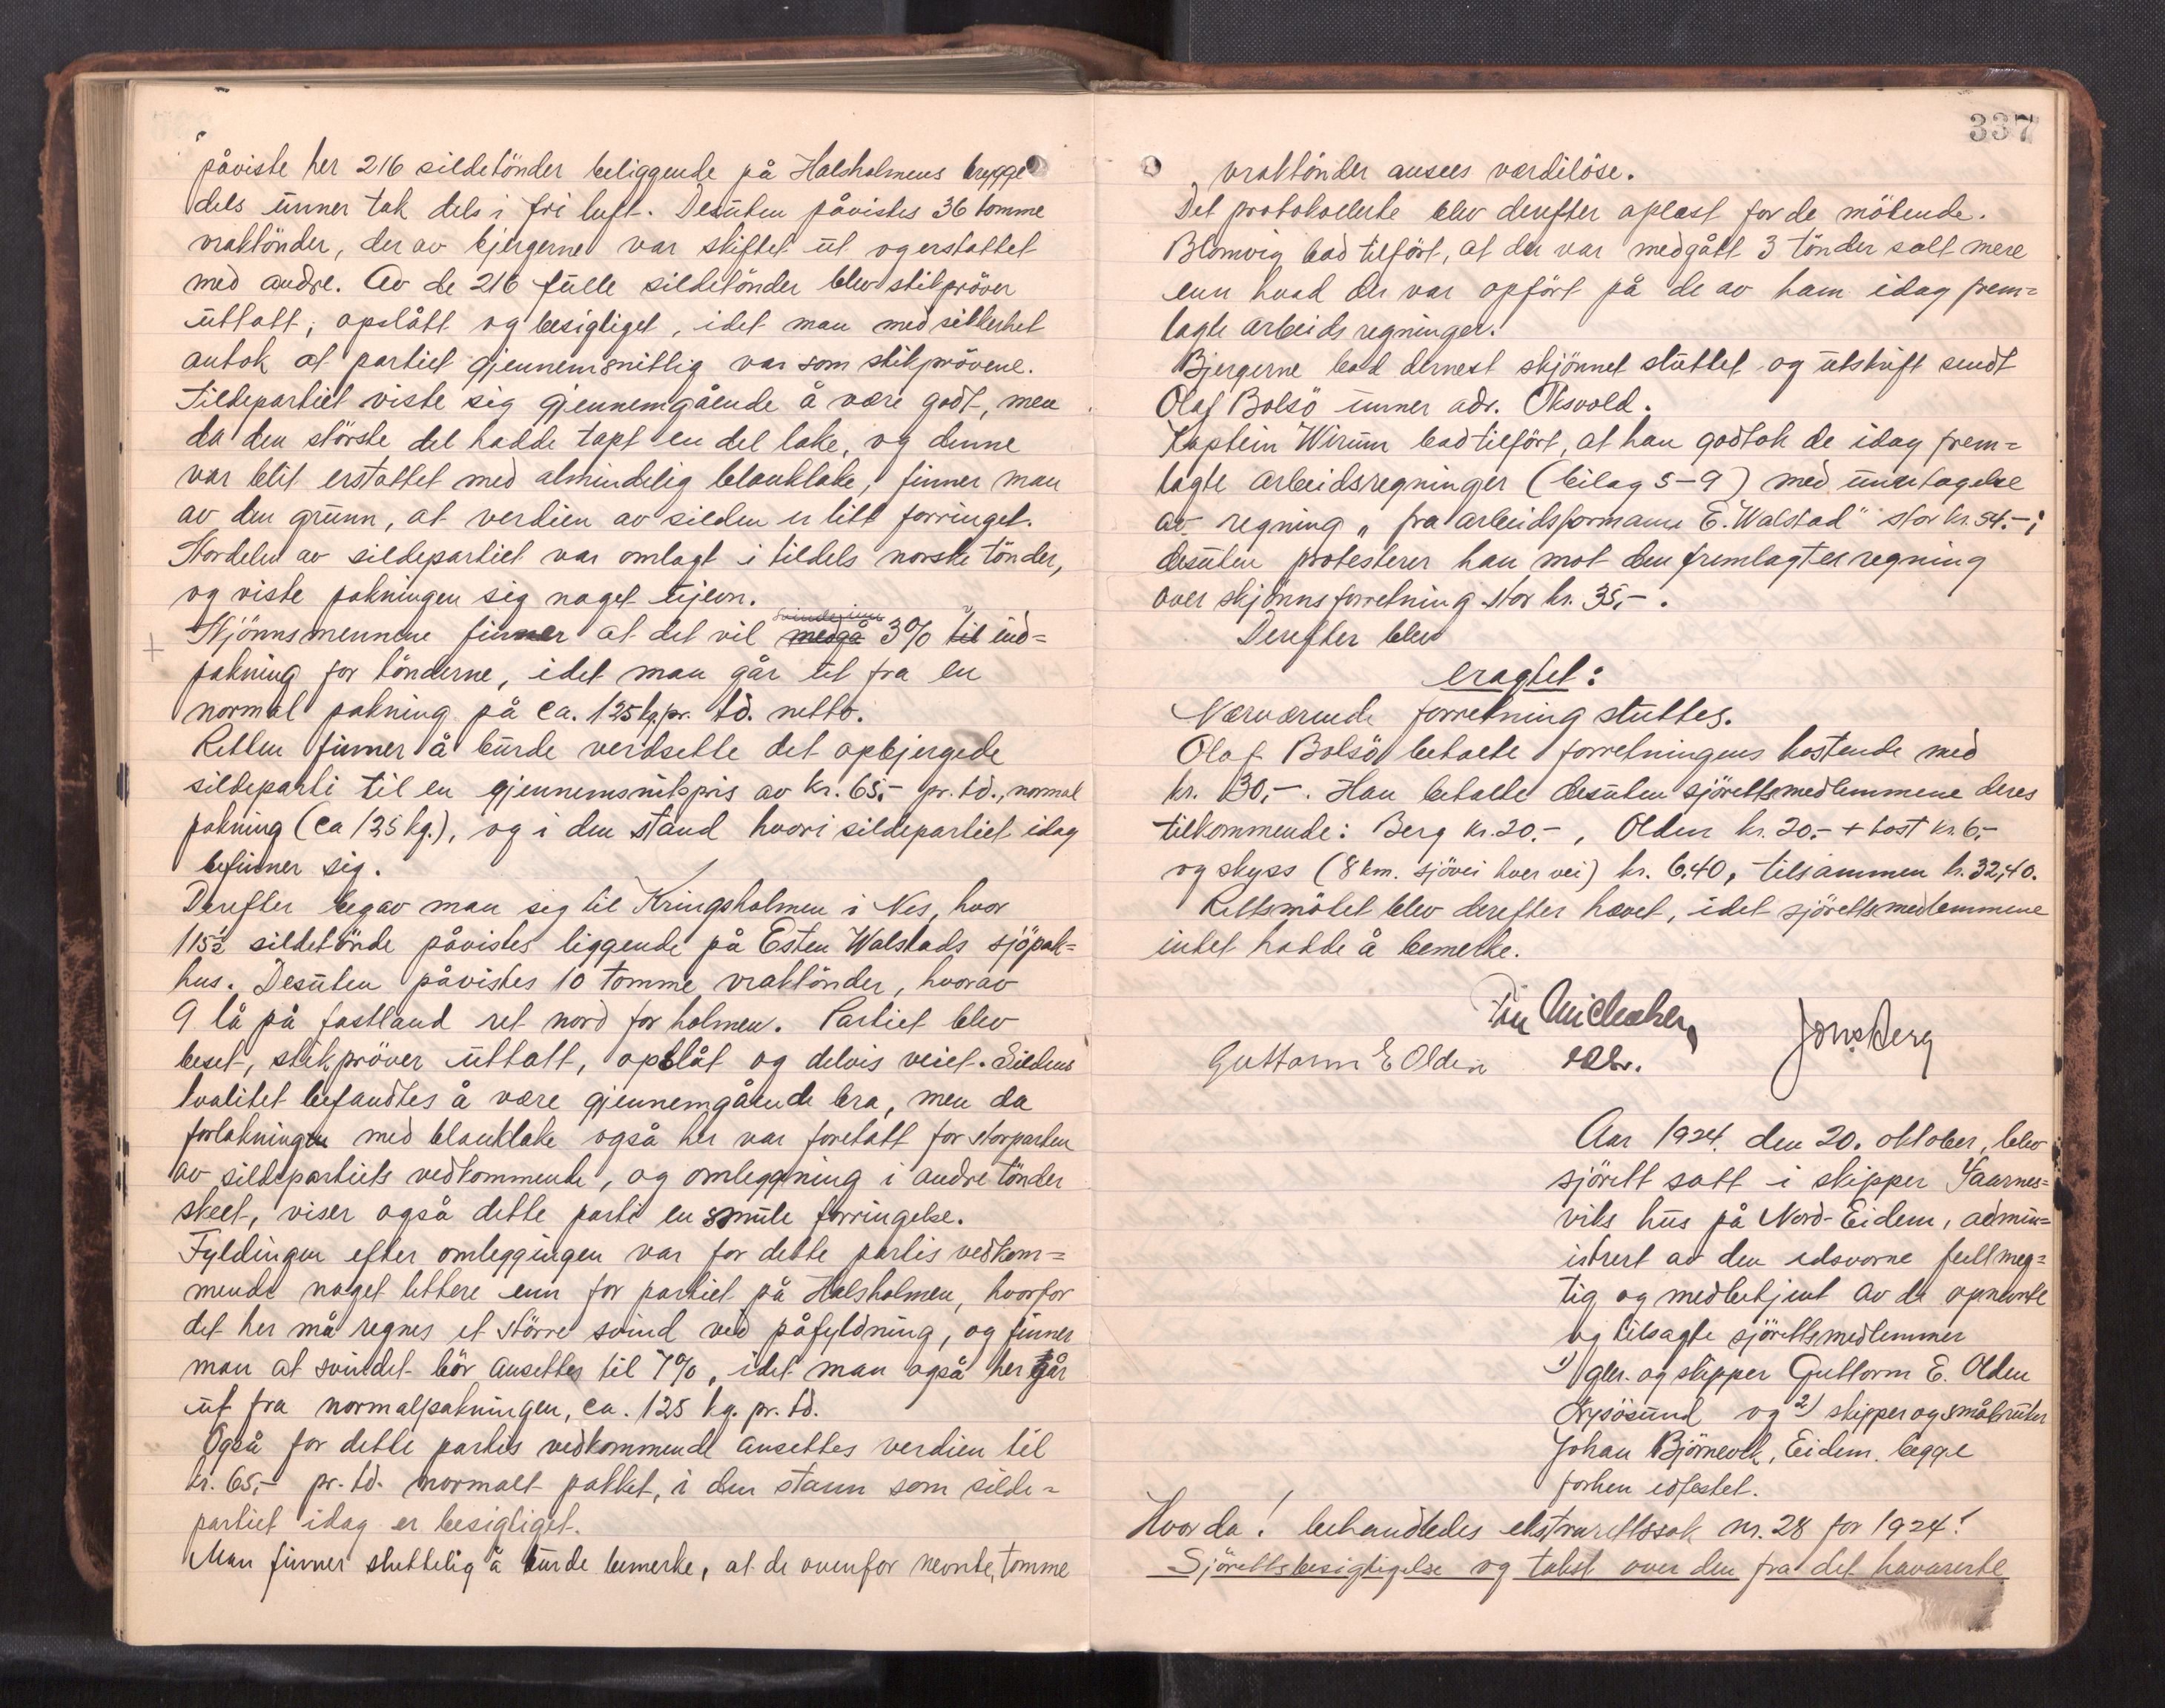 påviste her 216 sildetönder beliggende på Halsholmens brygge
dels unner tak dels i fri luft. Desuten påvistes 36 tomme
vraktönder, der av bjergerne var skiftet ut og erstattet
med andre. Av de 216 fulle sildetönder blev stikpröver
uttatt, opslått og besigtiget, idet man med sikkerhet
antok at partiet gjennemsnitlig var som stikprövene.
Sildepartiet viste sig gjennemgående å være godt, men
da den störste del hadde tapt en del lake, og denne
var blit erstattet med almindelig blanklake, finner man
av den grunn, at verdien av silden er litt forringet.
Stordelen av sildepartiet var omlagt i tildels norske tönder,
og viste pakningen sig noget ujevn.
Skjönnsmennene finner at det vil medgå 3% til ind=
pakning for tönderne, idet man går ut fra en
normal pakning på ca. 125 kg. pr. td. netto.
Retten finner å burde verdsette det opbjergede
sildeparti til en gjennemsnitspris av kr. 65,- pr. td., normal
pakning (ca 125 kg.), og i den stand hvori sildepartiet idag
befinner sig.
Derefter begav man sig til Kringsholmen i Nes, hvor
115½ sildetönde påvistes liggende på Esten Walstads sjöpak=
hus. Desuten påvistes 10 tomme vraktönder, hvorav
9 lå på fastland ret nord for holmen. Partiet blev
beset, stikpröver uttatt, opslåt og delvis veiet. Sildens
kvalitet befandtes å være gjennemgående bra, men da
forlakningen med blanklake også her var foretatt for storparten
av sildepartiets vedkommende, og omleggning i andre tönder
skeet, viser også dette parti en smule forringelse.
Fyldingen efter omleggingen var for dette partis vedkom=
mende noget lettere enn for partiet på Halsholmen, hvorfor
det her må regnes et större svind ved påfyldning, og finner
man at svindet bör ansettes til 7%, idet man også her går
ut fra normalpakningen, ca. 125 kg. pr. td.
Også for dette partis vedkommende ansettes verdien til
kr. 65,- pr. td. normalt pakket, i den stann som silde=
partiet idag er besigtiget.
Man finner sluttelig å burde bemerke, at de ovenfor nevnte, tomme
337
vraktönder ansees værdilöse.
Det protokollerte blev derefter oplæst for de mötende.
Blomvig bad tilfört, at der var medgått 3 tönder salt mere
enn hvad der var opfört på de av ham idag frem=
lagte arbeidsregninger.
Bjergerne bad dernest skjönnet sluttet og utskrift sendt
Olaf Bolsö unner adr. Oksvold.
Kaptein Wirum bad tilfört, at han godtok de idag frem=
lagte arbeidsregninger (bilag 5-9) med unntagelse
av regning "fra arbeidsformann E. Walstad" stor kr. 54.-;
desuten protesterer han mot den fremlagte regning
over skjönnsforretning stor kr. 35,-.
Derefter blev
eragtet:
Nærværende forretning sluttes.
Olaf Bolsö betalte forretningens kostende med
kr. 30,-. Han betalte desuten sjörettsmedlemmene deres
tilkommende: Berg kr. 20.-, Olden kr. 20.- + kost kr. 6,-
og skyss (8 km. sjövei hver vei) kr. 6,40, tilsammen kr. 32,40.
Rettsmötet blev derefter hævet, idet sjörettsmedlemmene
intet hadde å bemerke.
Jonsberg
Guttorm E Olden
Aar 1924. den 20. oktober, blev
sjörett satt i skipper Saarnes=
viks hus på Nord-Eidem, admin=
istrert av den edsvorne fullmeg=
tig og medbetjent av de opnevnte
og tilsagte sjörettsmedlemmer
1) gbr. og skipper Guttorm E. Olden
Dypösund og 2) skipper og småbruker
Johan Björnevik, Eidem, begge
forhen edfestet.
Hvor da! behandledes ekstrarettssak nr. 28 for 1924:
Sjörettsbesigtigelse og takst over den fra det havarerte